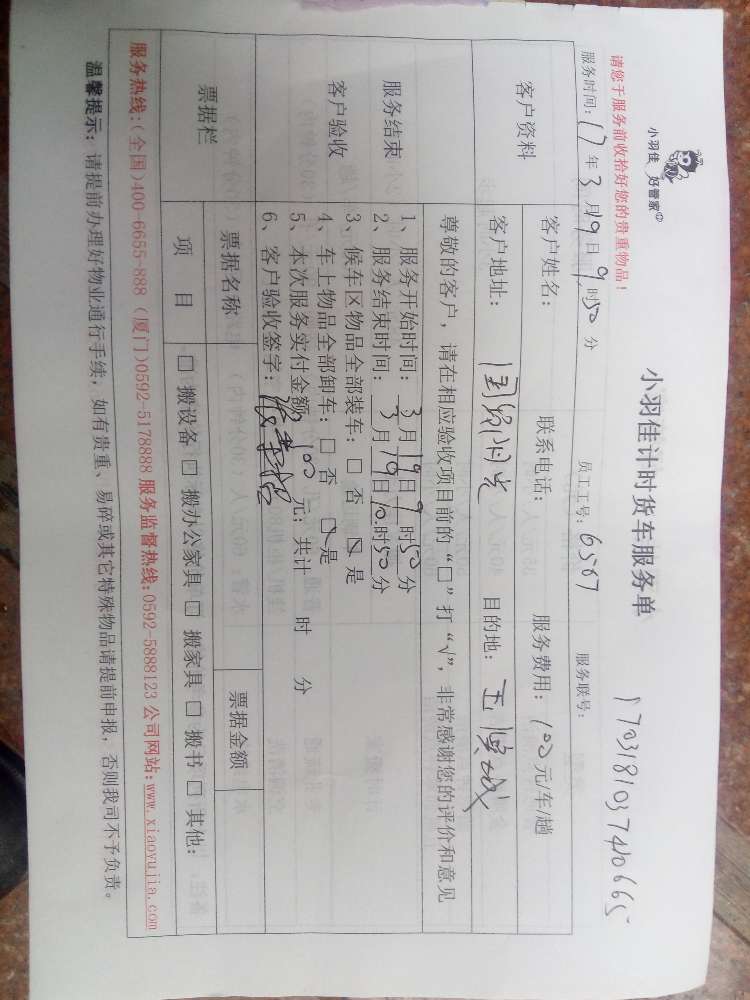 小羽佳 好管家
小羽佳计时货车服务单
170318103740665
请您于服务前收拾好您的贵重物品！
服务时间：17年3月19日9时50分 员工工号：6567 服务联号：
客户资料
客户姓名： 联系电话： 服务费用：100元/车/趟
客户地址：国贸阳光 目的地：
服务结束
客户验收
尊敬的客户，请在相应验收项目前的“□”打“√”，非常感谢您的评价和意见
1、服务开始时间：3月19日9时50分
2、服务结束时间：3月19日10时50分
3、候车区物品全部装车：□ 否 ☑ 是
4、车上物品全部卸车：□ 否 ☑ 是
5、本次服务实付金额100元；共计 时 分
6、客户验收签字：
票据栏
票据名称 票据金额
项 目 □ 搬设备 □ 搬办公家具 □ 搬家具 □ 搬书 □ 其他：
服务热线：(全国)400-6655-888 (厦门)0592-5178888 服务监督热线：0592-5888123 公司网站：www.xiaoyujia.com
温馨提示：请提前办理好物业通行手续，如有贵重、易碎或其它特殊物品请提前申报，否则我司不予负责。